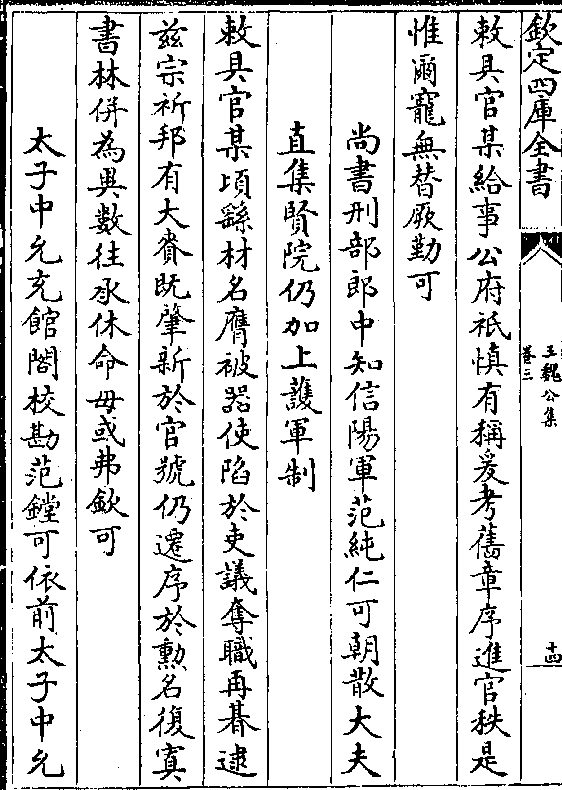 欽定四庫全書
王魏公集
卷三
十四
敕具官某給事公府祗慎有稱爰考舊章序進官秩是
惟爾寵無替厥勤可
尚書刑部郎中知信陽軍范純仁可朝散大夫
直集賢院仍加上護軍制
敕具官某頃繇材名膺被器使陷於吏議奪職再朞逮
茲宗祈邦有大賚既肇新於官號仍遷序於勲名復寘
書林併為異數往承休命毋或弗欽可
太子中允充館閣校勘范鏜可依前太子中允